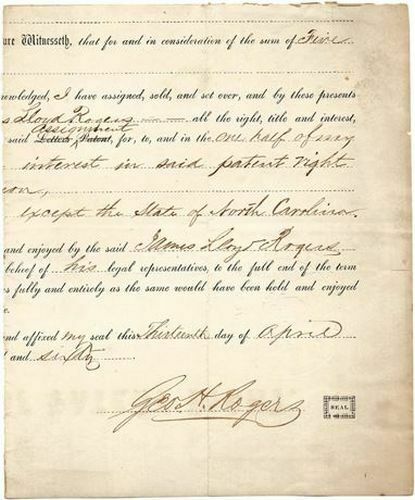 ure Witnesseth, that for and in consideration of the sum of Five
nowledged, I have assigned, sold, and set over, and by these presents
s Lloyd Rogers — — all the right, title and interest,
assignment
said Letters Patent, for, to, and in the one half of my
interest in said patent right
son,
except the State of North Carolina.
and enjoyed by the said James Lloyd Rogers
behoof of his legal representatives, to the full end of the term
s fully and entirely as the same would have been held and enjoyed
e.
nd affixed my seal this Thirteenth day of April
d and sixty
Geo. H. Rogers
SEAL